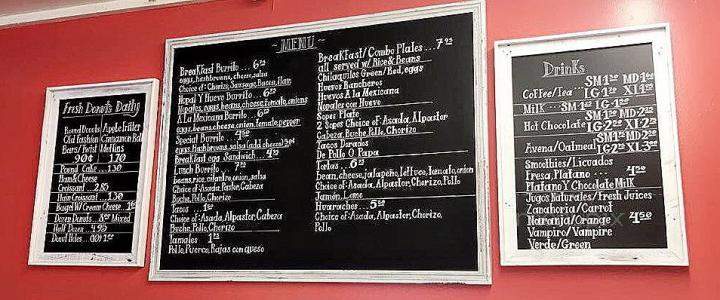 Fresh Donuts Daily
Round Donuts Apple Fritter
Old Fashion Cinnamon Roll
Bars/Twist
90¢ 1.70
Pound Cake 1.30
Ham & Cheese
Croissant 2.85
Plain Croissant 1.30
Bagel W/ Cream Cheese
Dozen Donuts Mixed
Half Dozen 4.95
Donut Holes
MENU
Breakfast Burrito ... 6
eggs, hashbrowns, cheese, salsa
Choice of: Chorizo, Sausage, Bacon, Ham
Nopal Y Huevo Burrito ... 6
Nopales, eggs, beans, cheese, tomato, onions
A La Mexicana Burrito ... 6
eggs, beans, cheese, onion, tomato, pepper
Special Burrito ... 4
eggs, hashbrowns, salsa
Breakfast egg Sandwich ... 4
Lunch Burrito
beans, rice, cilantro, onion, salsa
Choice of: Asada, Pastor, Cabeza
Buche, Pollo, Chorizo
Tacos
Choice of: Asada, Alpastor, Cabeza
Buche, Pollo, Chorizo
Tamales
Pollo, Puerco, Rajas con queso
Breakfast/Combo Plates ... 7
all served w/ Rice & Beans
Chilaquiles Green/Red, eggs
Huevos Rancheros
Huevos A la Mexicana
Nopales con Huevo
Sopes Plate
2 Sopes Choice of: Asada, Alpastor
Cabeza, Buche, Pollo, Chorizo
Tacos Dorados
De Pollo O Papa
Tortas ... 6
bean, cheese, jalapeño, lettuce, tomato, onion
Choice of: Asada, Alpastor, Chorizo, Pollo
Jamón, Lomo
Huaraches ... 5
Choice of: Asada, Alpastor, Chorizo,
Pollo
Drinks
SM 1 MD 1
Coffee/Tea LG 1 XL 1
Milk SM 1 LG 1
SM 1 MD 2
Hot Chocolate LG 2 XL 2
SM 1 MD 2
Avena/Oatmeal LG 2 XL 3
Smoothies/Licuados
Fresa, Platano 4
Platano Y Chocolate Milk
Jugos Naturales/Fresh Juices
Zanahoria/Carrot
Naranja/Orange 4
Vampiro/Vampire
Verde/Green